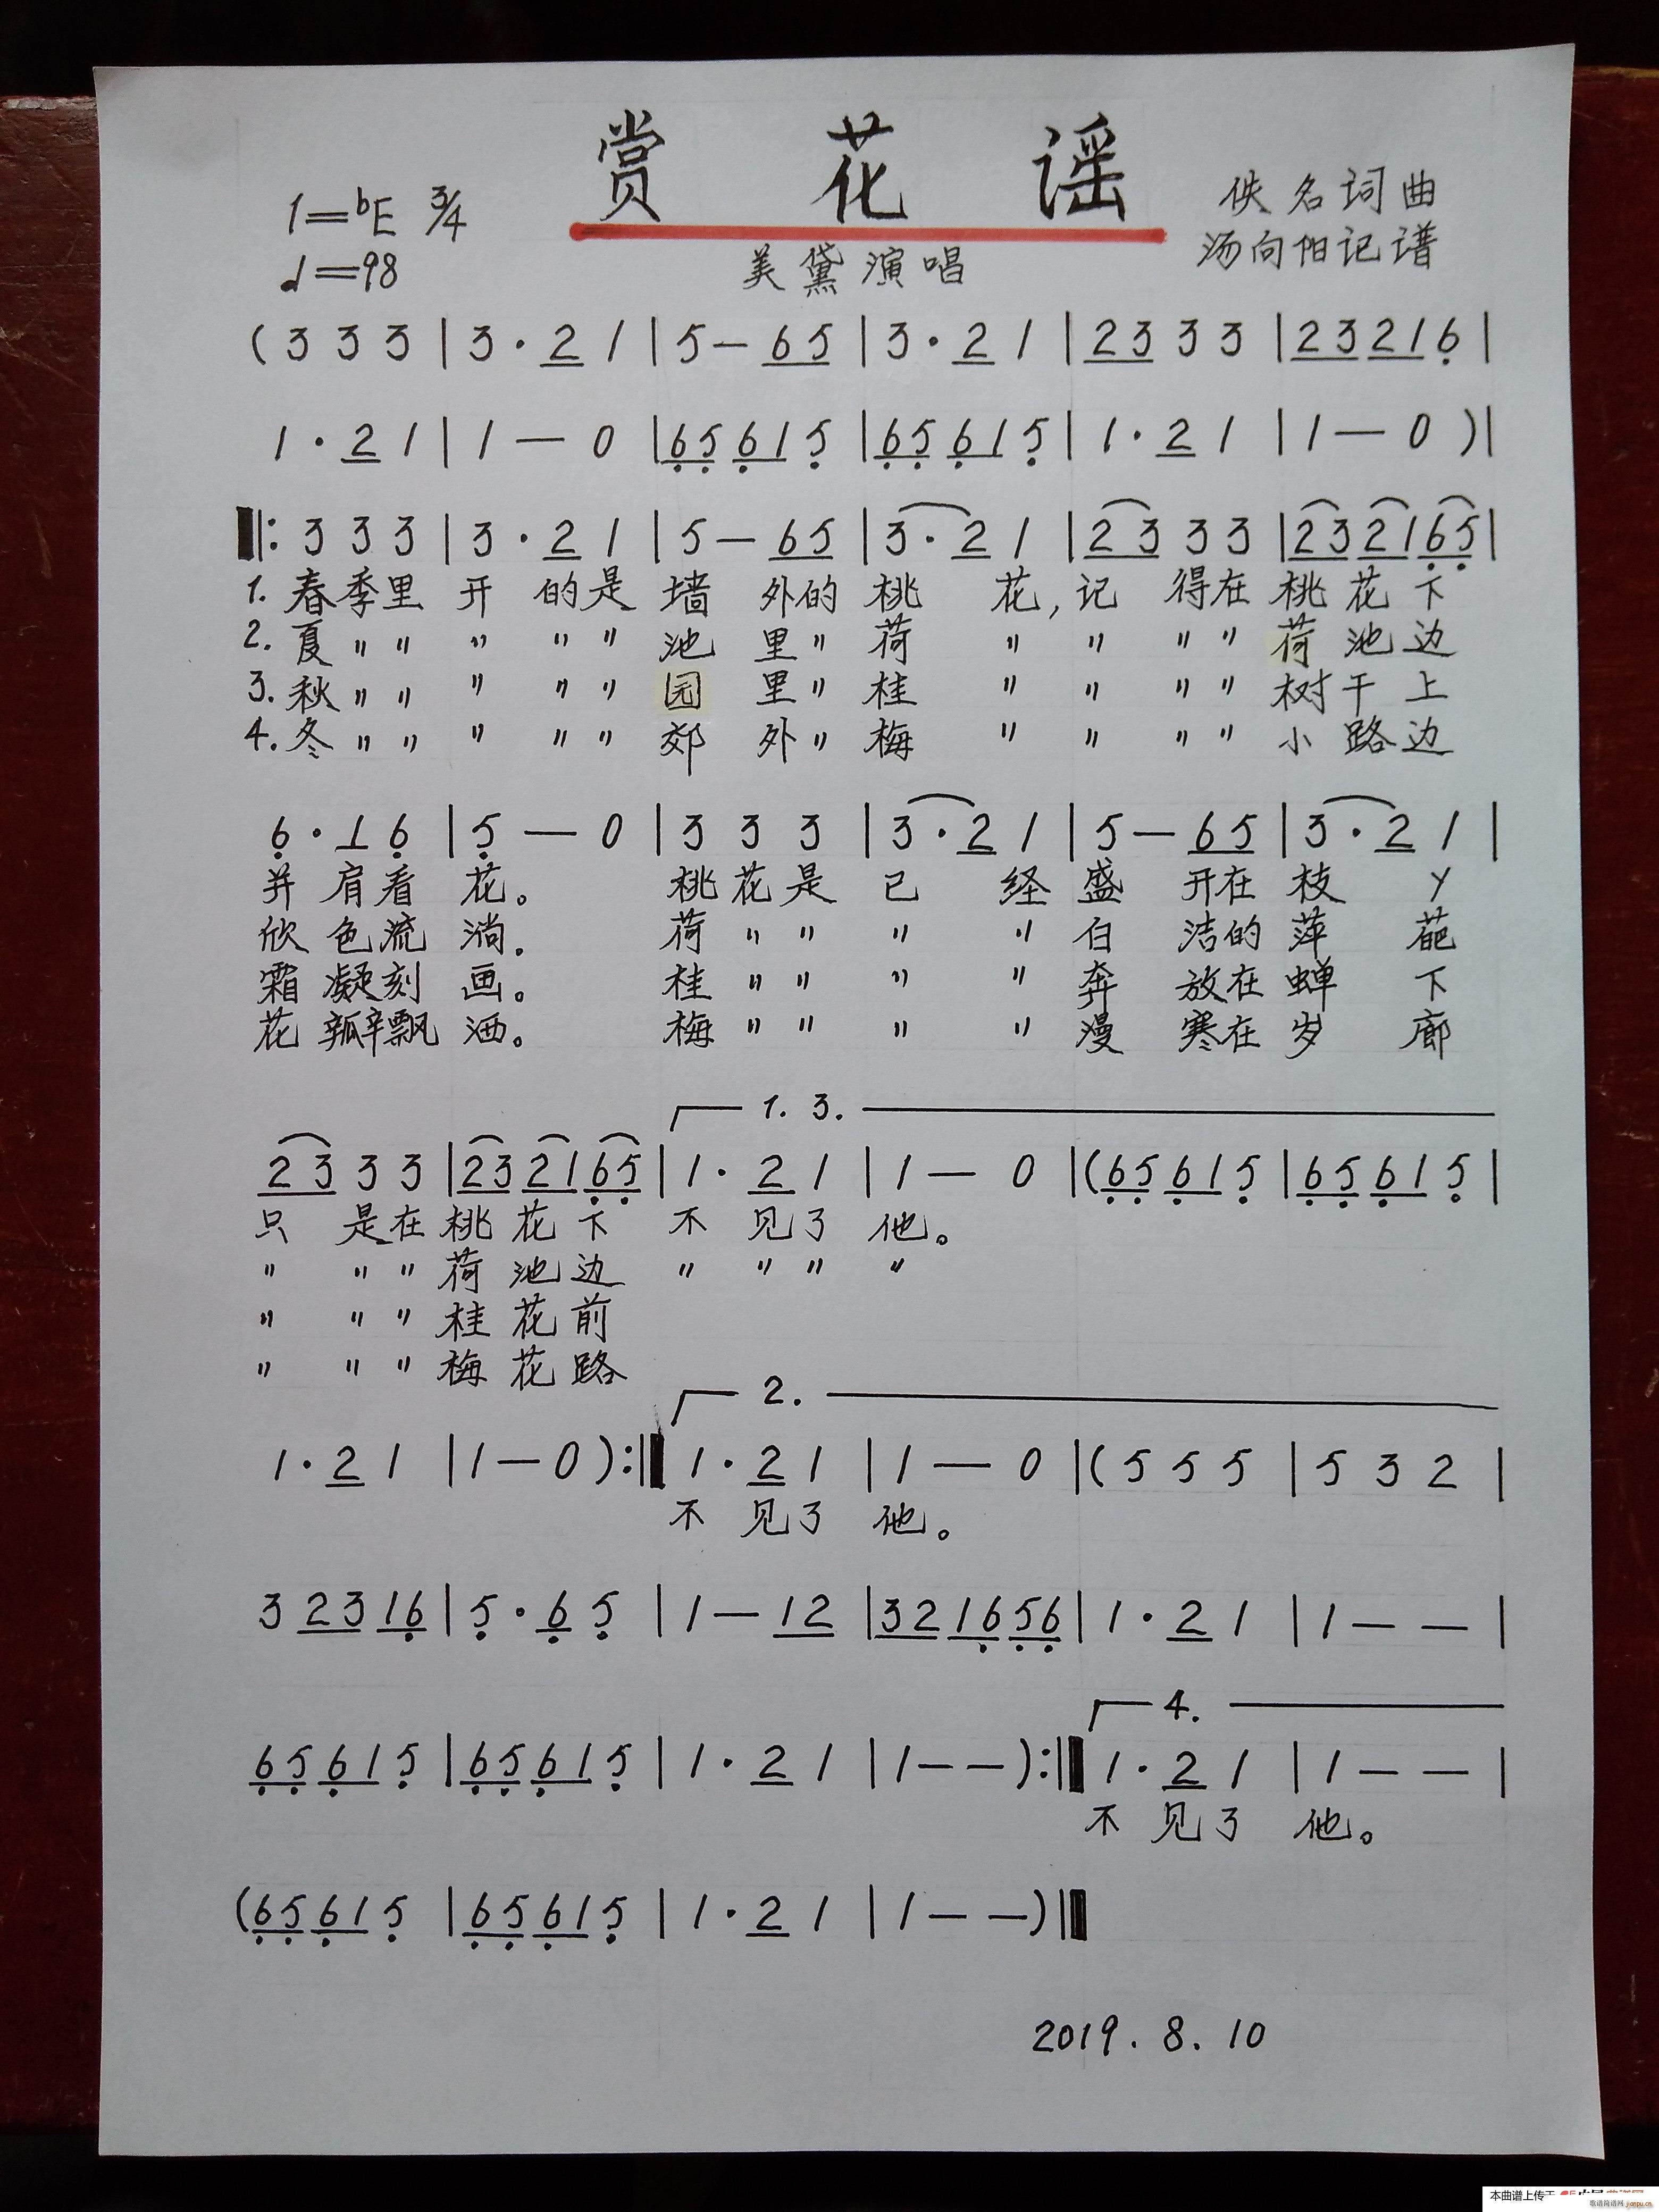 赏花谣
1=♭E 3/4
♩=98
佚名词曲
汤向阳记谱
美黛演唱
(3 3 3 | 3 · 2 1 | 5 — 6 5 | 3 · 2 1 | 2 3 3 3 | 2 3 2 1 6 |
1 · 2 1 | 1 — 0 | 6 5 6 1 5 | 6 5 6 1 5 | 1 · 2 1 | 1 — 0 ) |
‖: 3 3 3 | 3 · 2 1 | 5 — 6 5 | 3 · 2 1 | 2 3 3 3 | 2 3 2 1 6 5 |
1. 春季里 开 的是 墙 外的 桃 花, 记 得在 桃花下
2. 夏 〃 〃 〃 〃 〃 池 里 〃 荷 〃 〃 〃 〃 荷池边
3. 秋 〃 〃 〃 〃 〃 园 里 〃 桂 〃 〃 〃 〃 树干上
4. 冬 〃 〃 〃 〃 〃 郊 外 〃 梅 〃 〃 〃 〃 小路边
6 · 1 6 | 5 — 0 | 3 3 3 | 3 · 2 1 | 5 — 6 5 | 3 · 2 1 |
并 肩看 花。 桃花是 已 经 盛 开在 枝 丫
欣 色流 淌. 荷 〃 〃 〃 〃 白 洁的 萍 葩
霜 凝刻 画。 桂 〃 〃 〃 〃 奔 放在 蝉 下
花 瓣飘 洒。 梅 〃 〃 〃 〃 漫 寒在 岁 廊
1. 3.
2 3 3 3 | 2 3 2 1 6 5 | 1 · 2 1 | 1 — 0 | (6 5 6 1 5 | 6 5 6 1 5 |
只 是在 桃花下 不 见了 他。
〃 〃 〃 荷池边 〃 〃 〃 〃
〃 〃 〃 桂花前
〃 〃 〃 梅花路
2.
1 · 2 1 | 1 — 0 ) :‖ 1 · 2 1 | 1 — 0 | (5 5 5 | 5 3 2 |
不 见了 他。
3 2 3 1 6 | 5 · 6 5 | 1 — 1 2 | 3 2 1 6 5 6 | 1 · 2 1 | 1 — — |
4.
6 5 6 1 5 | 6 5 6 1 5 | 1 · 2 1 | 1 — — ) :‖ 1 · 2 1 | 1 — — |
不 见了 他。
(6 5 6 1 5 | 6 5 6 1 5 | 1 · 2 1 | 1 — — ) ‖
2019. 8. 10
本曲谱上传于
歌谱简谱网 jianpu.cn